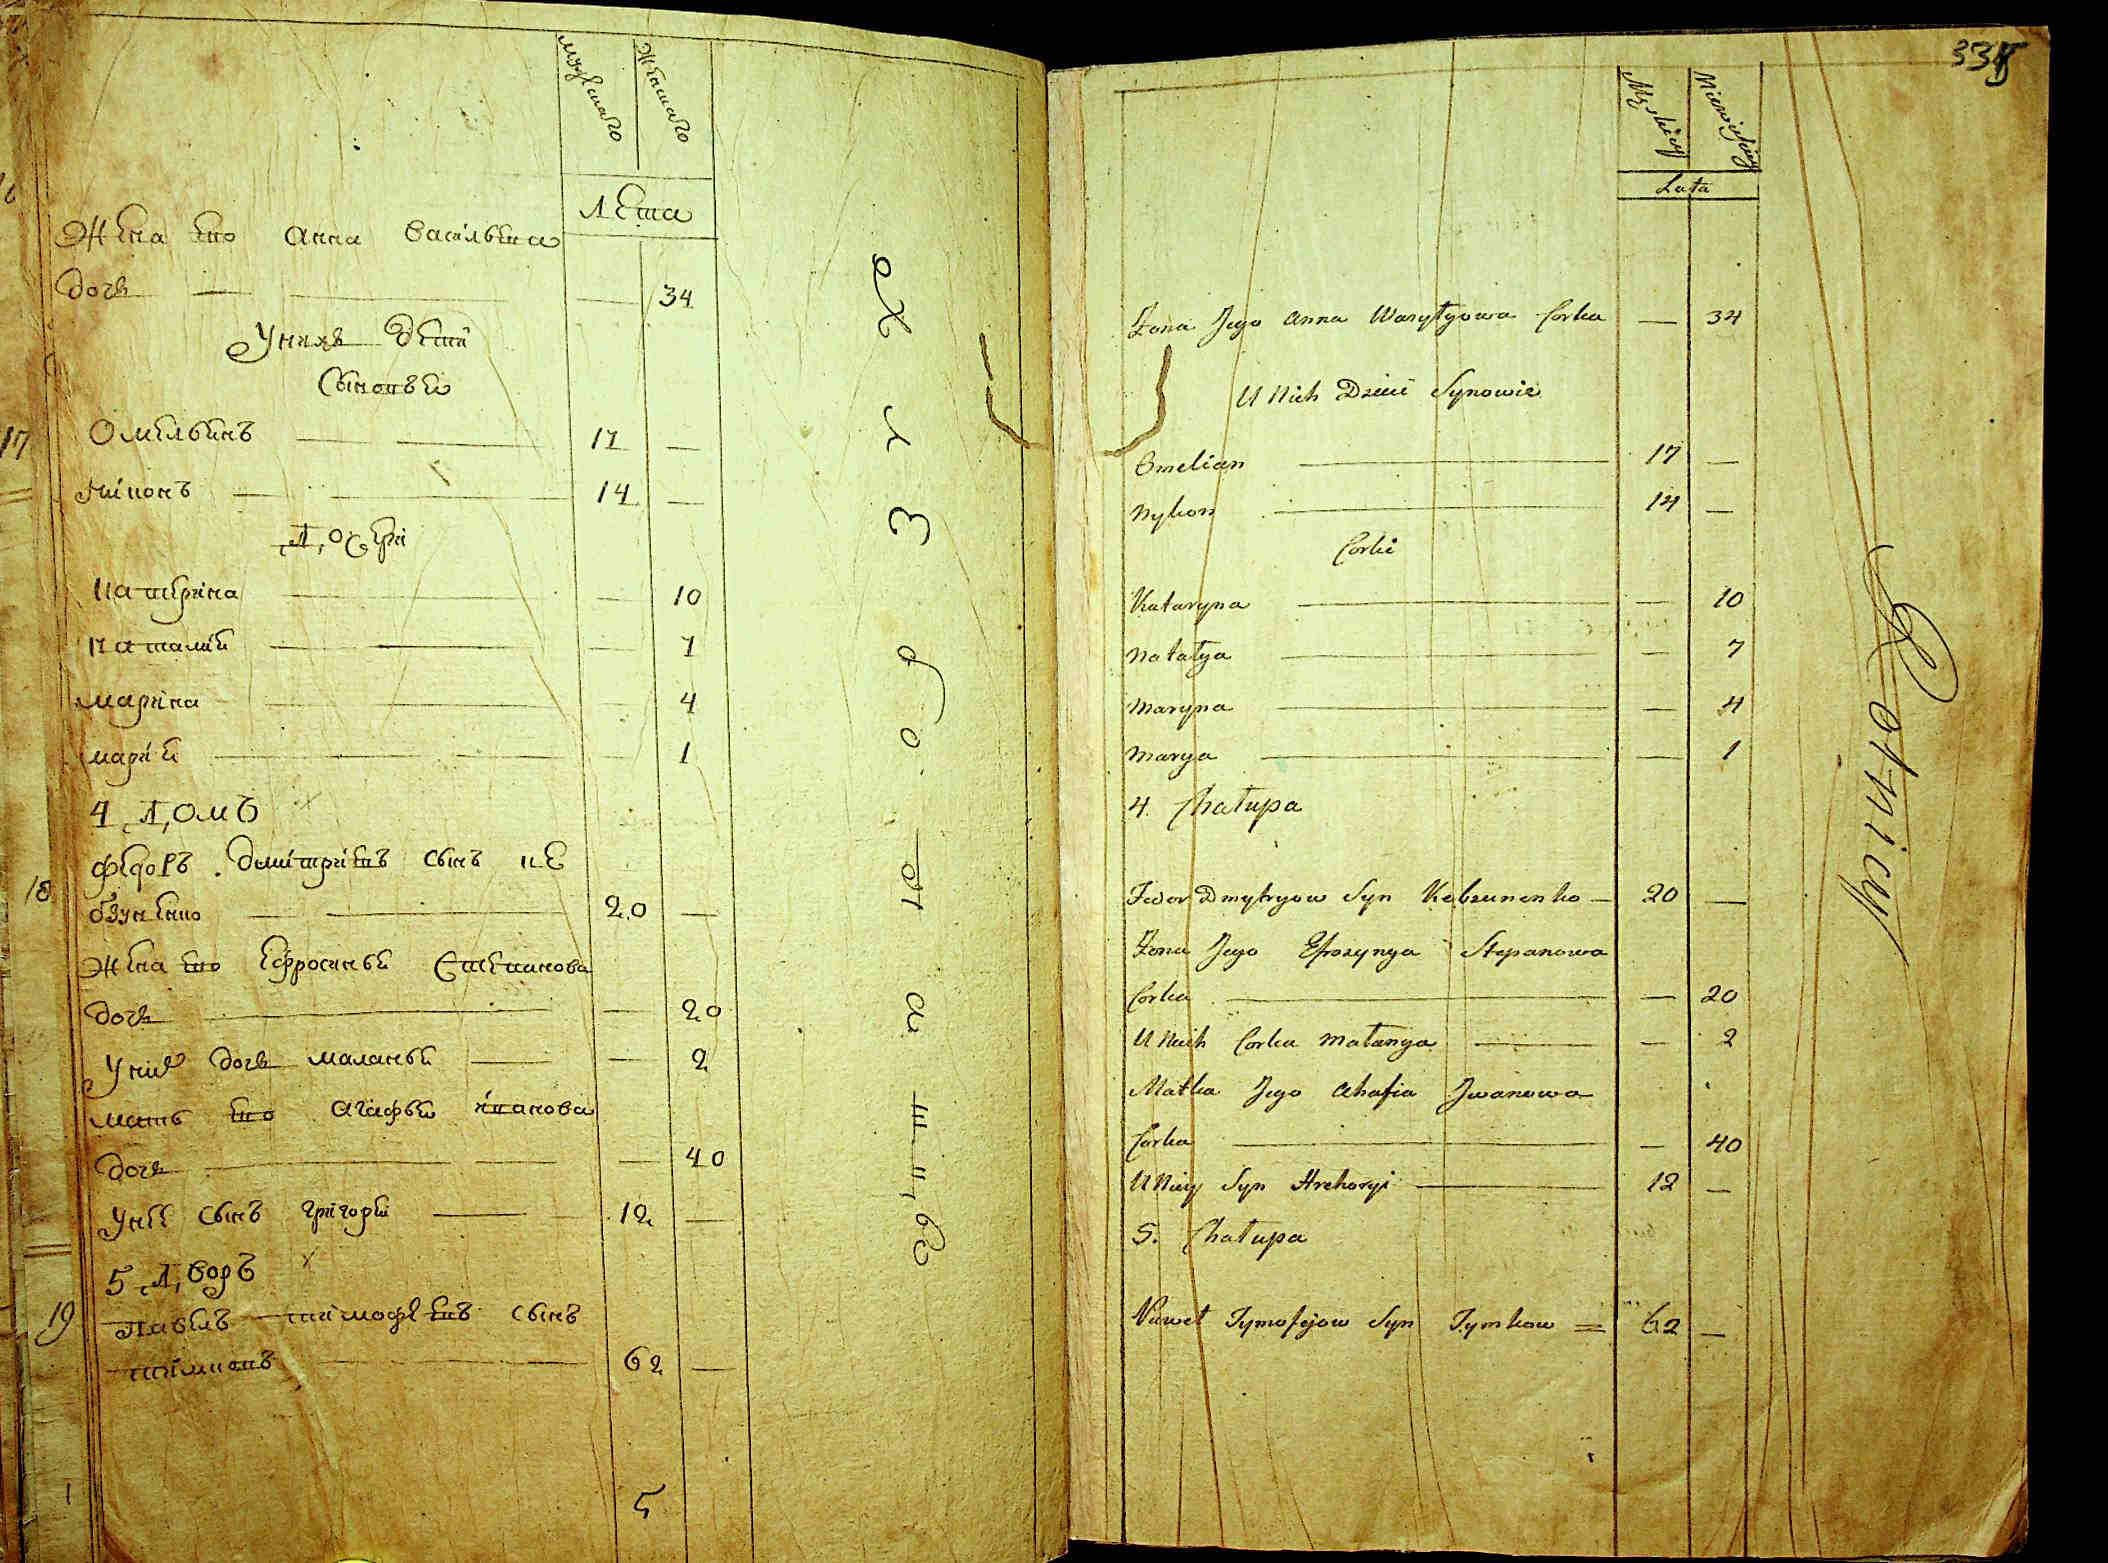 мужскаго
женскаго
лета
Жена ево Анна Васильева
дочь — — 34
У нихъ дети
Сыновьи
Омельянъ — 17 —
Никонъ — 14 —
Дочери
Катерина — — 10
Наталия — — 7
Марина — — 4
Мария — — 1
4 Домъ
18
Федоръ Дмитриевъ сынъ Ке
бзуненко — 20 —
Жена ево Ефросинья Степанова
дочь — — 20
У них дочь Маланья — — 2
Мать ево Агафья Иванова
дочь — — 40
У неё сынъ Григорий — 12 —
5 Дворъ
19
Павелъ Тимофеевъ сынъ
Тимковъ — 62 —
5
17
335
Męskiey
Niewieskiey
Lata
Żona Jego Anna Wasylyowa Corka — 34
U Nich Dzieci Synowie
Omelian — 17 —
Nykon — 14 —
Corki
Kataryna — — 10
Natalya — — 7
Maryna — — 4
Marya — — 1
4. Chałupa
Fedor Dmytryow Syn Kebzunenko — 20 —
Żona Jego Efrozynya Stepanowa
Corka — — 20
U Nich Corka Małanya — — 2
Matka Jego Ahafia Jwanowa
Corka — — 40
U Niey Syn Hrehoryi — 12 —
5. Chałupa
Paweł Tymofejow Syn Tymkow = 62 —
Rotnicy